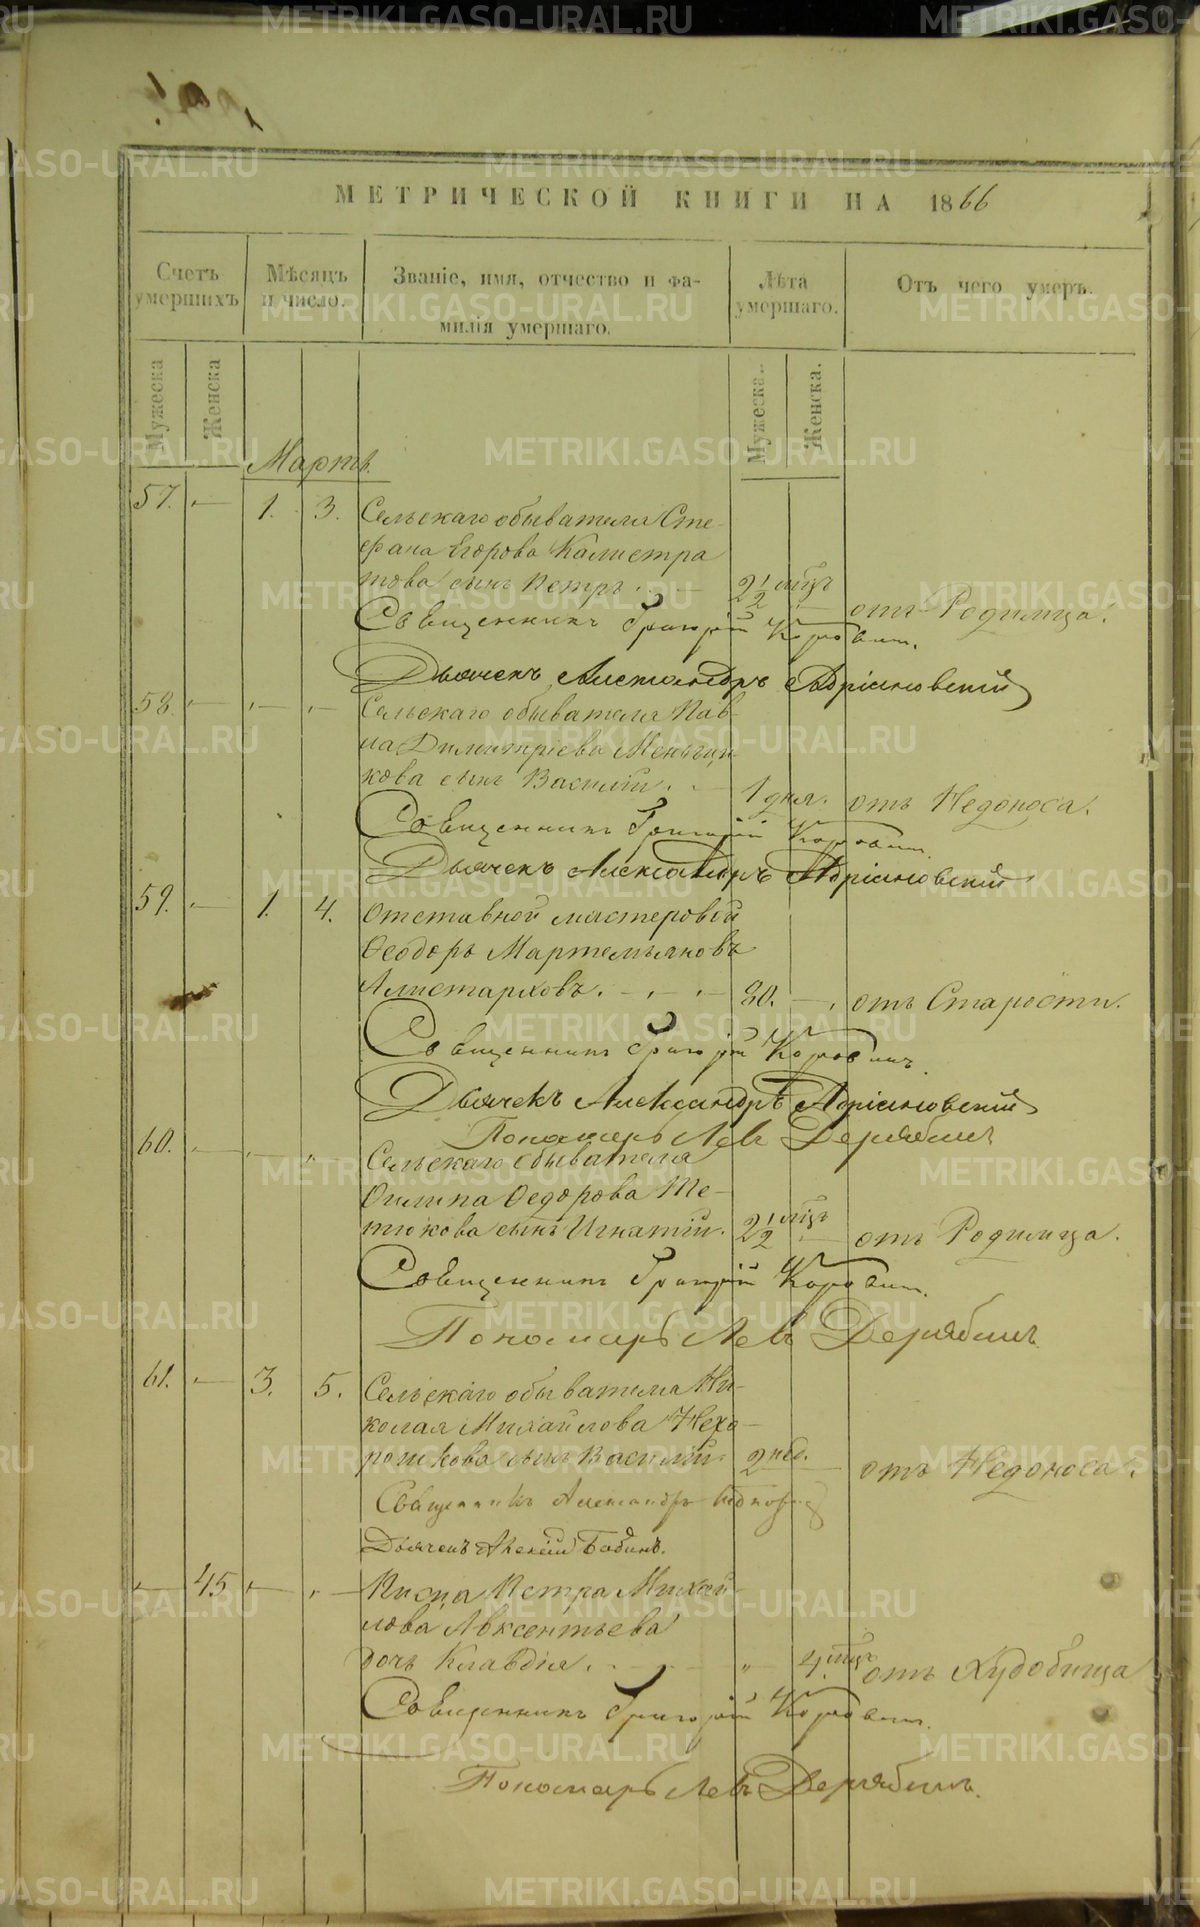 МЕТРИЧЕСКОЙ КНИГИ НА 1866
Счетъ умершихъ. Мѣсяцъ и число. Званіе, имя, отчество и фамилія умершаго. Лѣта умершаго. Отъ чего умеръ.
Мужеска Женска Мужеска. Женска.
Мартъ.
57. 1. 3. Сельскаго обывателя Сте-
фана Егорова Калистра
това сынъ Петръ. 2 1/2 мѣц отъ Родимца.
Священникъ Григорій Коровинъ.
Дьячекъ Александръ Адріановскій
58. Сельскаго обывателя Пав-
ла Димитріева Меньщи-
кова сынъ Василій. 1 дня. отъ Недоноса.
Священникъ Григорій Коровинъ.
Дьячекъ Александръ Адріановскій
59. 1. 4. Отставной мастеровой
Ѳеодоръ Мартемьяновъ
Алистарховъ. 80. отъ Старости.
Священникъ Григорій Коровинъ.
Дьячекъ Александръ Адріановскій
Пономарь Левъ Дерябинъ
60. Сельскаго обывателя
Филипа Ѳедорова Те-
тюкова сынъ Игнатій. 2 1/2 мѣц отъ Родимца.
Священникъ Григорій Коровинъ.
Пономарь Левъ Дерябинъ.
61. 3. 5. Сельскаго обывателя Ни-
колая Михайлова Нехо-
рошкова сынъ Василій. 2 нед. отъ Недоноса.
Священникъ Александръ
Дьячекъ Алексій Бабинъ.
45 Писца Петра Михай-
лова Авксентьева
дочь Клавдія. 4 мѣц отъ Худобища
Священникъ Григорій Коровинъ.
Пономарь Левъ Дерябинъ.
METRIKI.GASO-URAL.RU